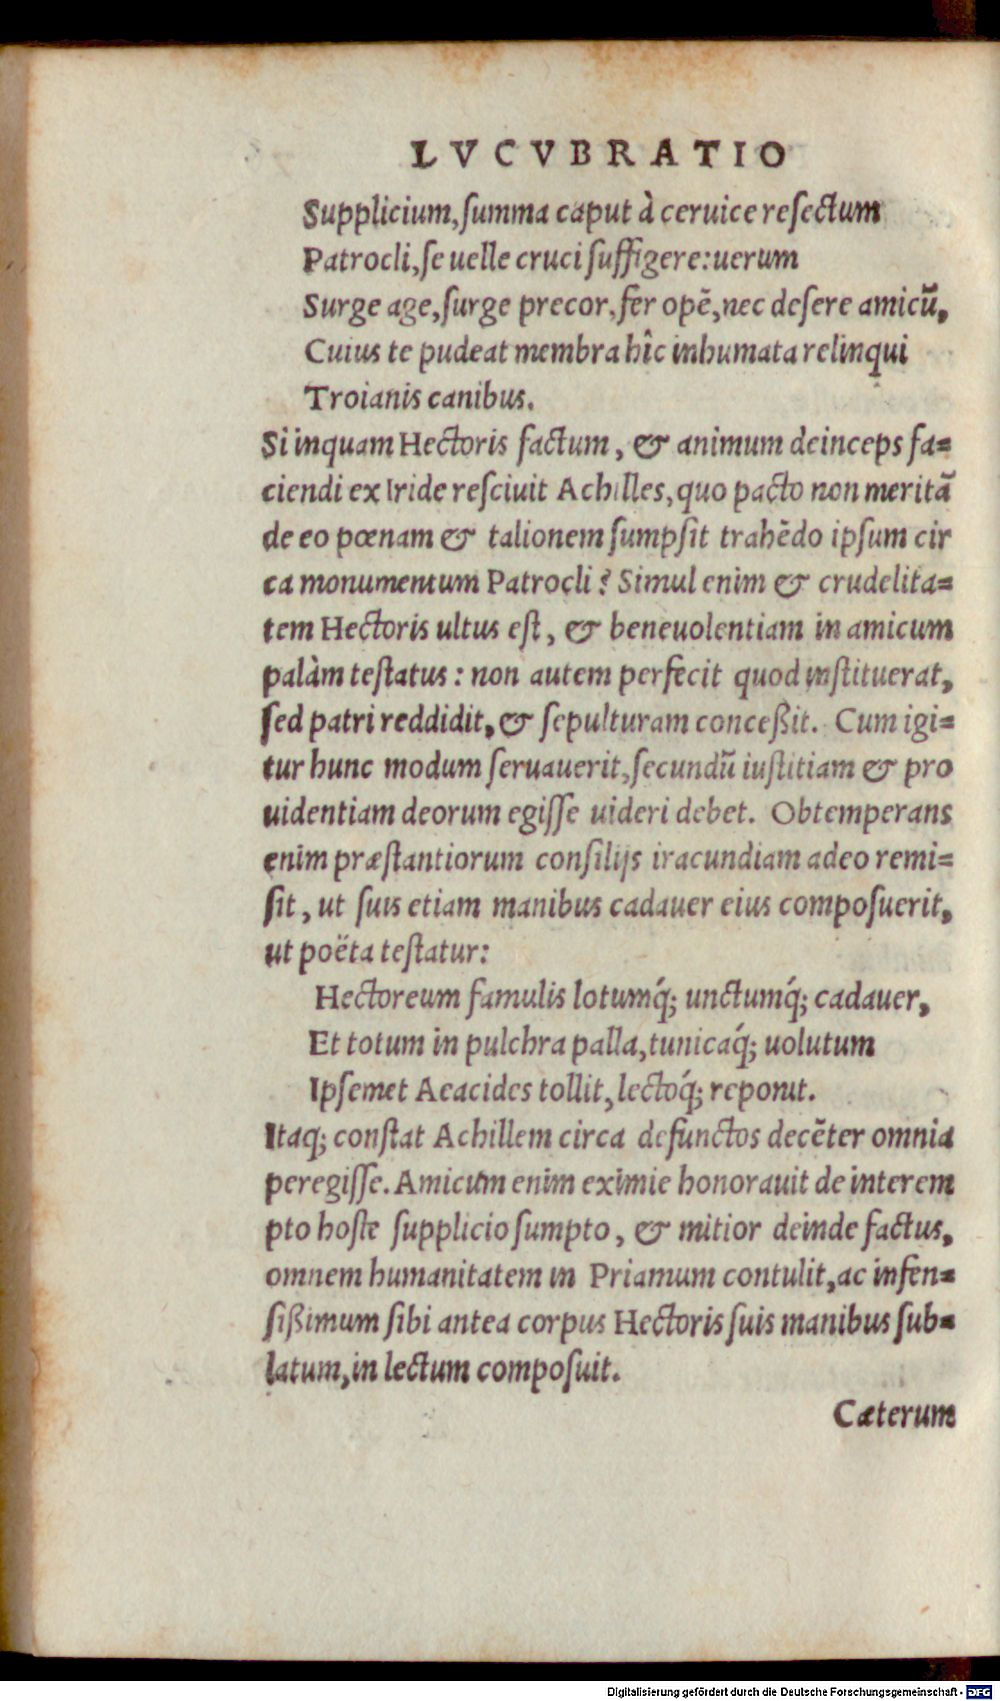 LVCVBRATIO
Supplicium, ſumma caput à ceruice reſectum
Patrocli, ſe uelle cruci ſuffigere: uerum
Surge age, ſurge precor, fer opẽ, nec deſere amicũ,
Cuius te pudeat membra hîc inhumata relinqui
Troianis canibus.
Si inquam Hectoris factum, & animum deinceps fa=
ciendi ex Iride reſciuit Achilles, quo pacto non meritã
de eo pœnam & talionem ſumpſit trahẽdo ipſum cir
ca monumentum Patrocli? Simul enim & crudelita=
tem Hectoris ultus eſt, & beneuolentiam in amicum
palàm teſtatus: non autem perfecit quod inſtituerat,
ſed patri reddidit, & ſepulturam conceßit. Cum igi=
tur hunc modum ſeruauerit, ſecundũ iuſtitiam & pro
uidentiam deorum egiſſe uideri debet. Obtemperans
enim præſtantiorum conſilijs iracundiam adeo remi=
ſit, ut ſuis etiam manibus cadauer eius compoſuerit,
ut poëta teſtatur:
Hectoreum famulis lotumq́; unctumq́; cadauer,
Et totum in pulchra palla, tunicaq́; uolutum
Ipſemet Aeacides tollit, lectoq́; reponit.
Itaq; conſtat Achillem circa defunctos decẽter omnia
peregiſſe. Amicum enim eximie honorauit de interem
pto hoſte ſupplicio ſumpto, & mitior deinde factus,
omnem humanitatem in Priamum contulit, ac infen=
ſißimum ſibi antea corpus Hectoris ſuis manibus ſub=
latum, in lectum compoſuit.
Cæterum
Digitalisierung gefördert durch die Deutsche Forschungsgemeinschaft - DFG